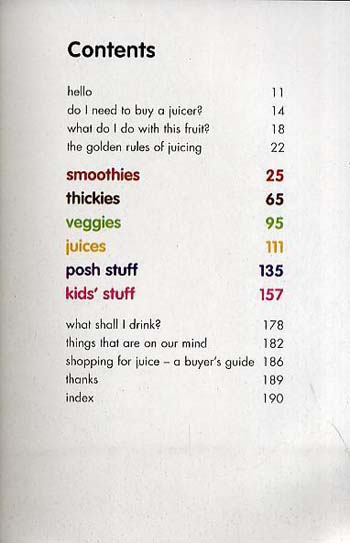 Contents
hello 11
do I need to buy a juicer? 14
what do I do with this fruit? 18
the golden rules of juicing 22
smoothies 25
thickies 65
veggies 95
juices 111
posh stuff 135
kids' stuff 157
what shall I drink? 178
things that are on our mind 182
shopping for juice – a buyer's guide 186
thanks 189
index 190